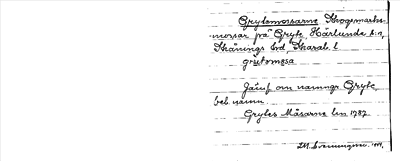 Grytemossarne Skogsmarks-
mossar på Gryte, Härlunda sn,
Skånings hd, Skarab. l.
grøtomosa
Jämf om namngr. Gryte,
beb namn.
Grytes Måsarne lm 1787